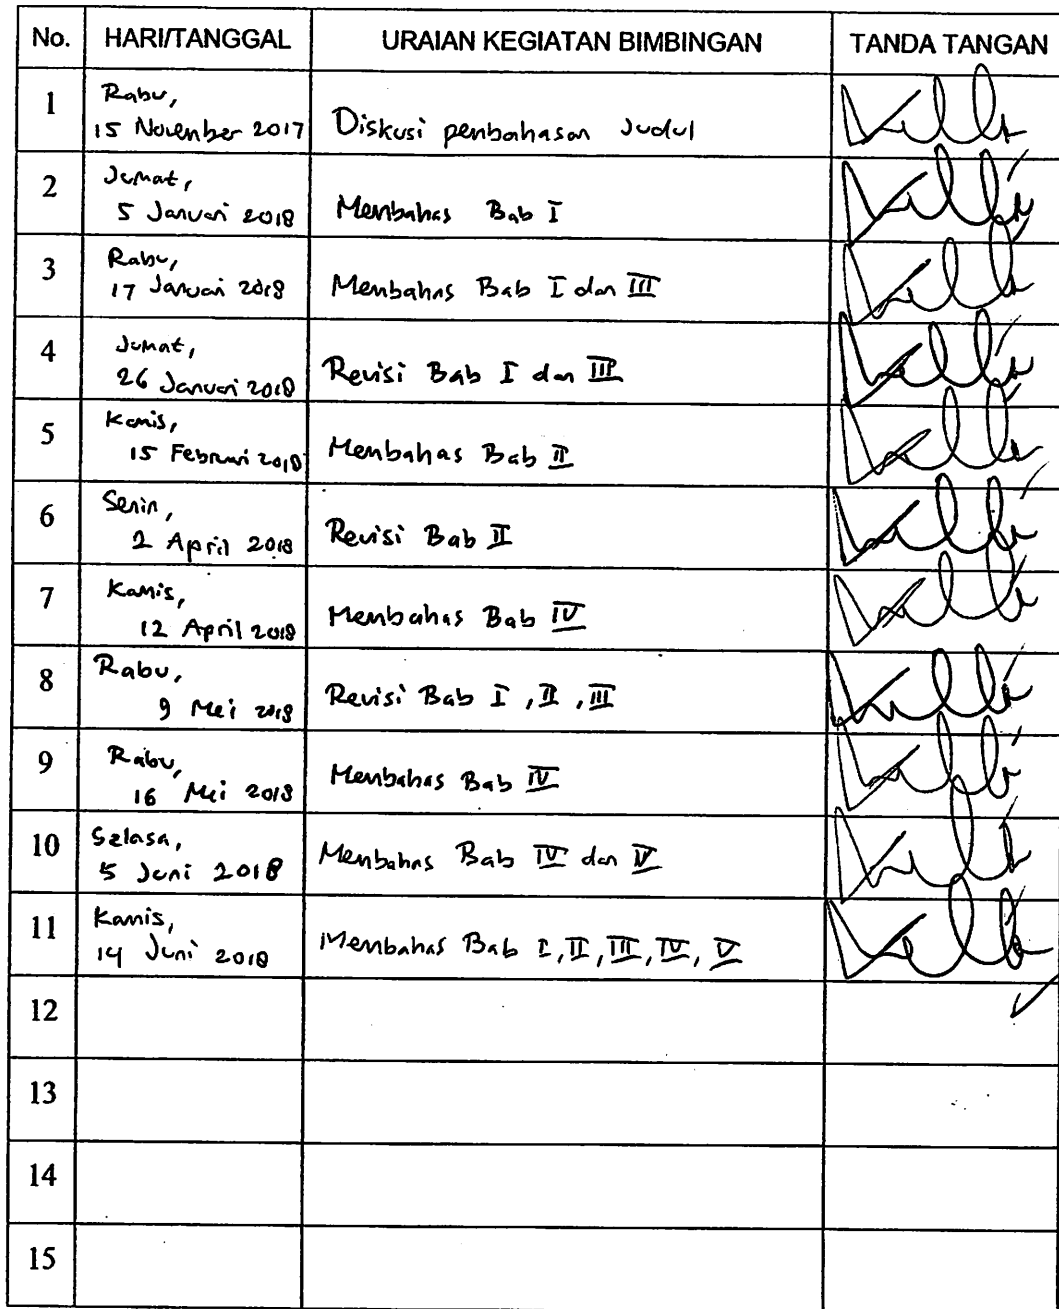 No. HARI/TANGGAL URAIAN KEGIATAN BIMBINGAN TANDA TANGAN
1 Rabu,
15 November 2017 Diskusi penbahasan Judul
2 Jumat,
5 Januari 2018 Membahas Bab I
3 Rabu,
17 Januari 2018 Membahas Bab I dan III
4 Jumat,
26 Januari 2018 Revisi Bab I dan III
5 Kamis,
15 Februari 2018 Membahas Bab II
6 Senin,
2 April 2018 Revisi Bab II
7 Kamis,
12 April 2018 Membahas Bab IV
8 Rabu,
9 Mei 2018 Revisi Bab I, II, III
9 Rabu,
16 Mei 2018 Membahas Bab IV
10 Selasa,
5 Juni 2018 Membahas Bab IV dan V
11 Kamis,
14 Juni 2018 Membahas Bab I, II, III, IV, V
12
13
14
15